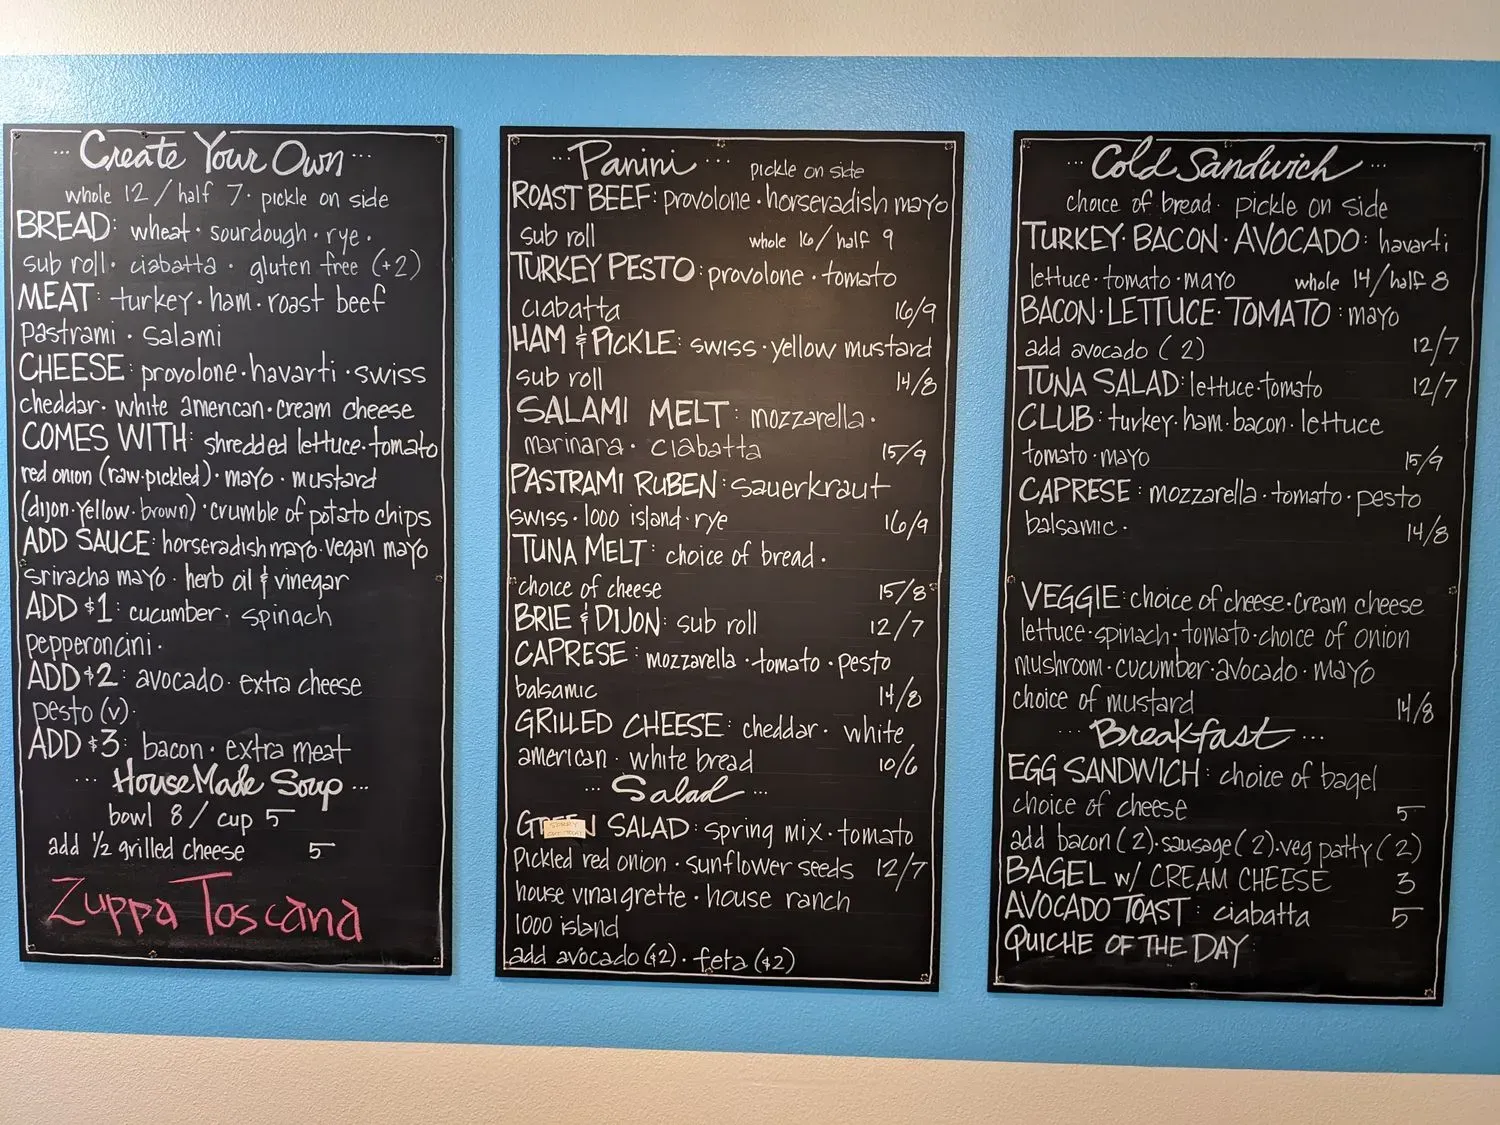 ... Create Your Own ...
whole 12 / half 7 · pickle on side
BREAD: wheat · sourdough · rye ·
sub roll · ciabatta · gluten free (+2)
MEAT: turkey · ham · roast beef
pastrami · salami
CHEESE: provolone · havarti · swiss
cheddar · white american · cream cheese
COMES WITH: shredded lettuce · tomato
red onion (raw · pickled) · mayo · mustard
(dijon · yellow · brown) · crumble of potato chips
ADD SAUCE: horseradish mayo · vegan mayo
sriracha mayo · herb oil & vinegar
ADD $1: cucumber · spinach
pepperoncini ·
ADD $2: avocado · extra cheese
pesto (v) ·
ADD $3: bacon · extra meat
... HouseMade Soup ...
bowl 8 / cup 5
add ½ grilled cheese 5
Zuppa Toscana
... Panini ... pickle on side
ROAST BEEF: provolone · horseradish mayo
sub roll whole 16/half 9
TURKEY PESTO: provolone · tomato
ciabatta 16/9
HAM & PICKLE: swiss · yellow mustard
sub roll 14/8
SALAMI MELT: mozzarella ·
marinara · ciabatta 15/9
PASTRAMI RUBEN: sauerkraut
swiss · 1000 island · rye 16/9
TUNA MELT: choice of bread ·
choice of cheese 15/8
BRIE & DIJON: sub roll 12/7
CAPRESE: mozzarella · tomato · pesto
balsamic 14/8
GRILLED CHEESE: cheddar · white
american · white bread 10/6
... Salad ...
GREEN SALAD: spring mix · tomato
SORRY
OUT TODAY
pickled red onion · sunflower seeds 12/7
house vinaigrette · house ranch
1000 island
add avocado ($2) · feta ($2)
... Cold Sandwich ...
choice of bread · pickle on side
TURKEY · BACON · AVOCADO: havarti
lettuce · tomato · mayo whole 14/half 8
BACON · LETTUCE · TOMATO: mayo
add avocado (2) 12/7
TUNA SALAD: lettuce · tomato 12/7
CLUB: turkey · ham · bacon · lettuce
tomato · mayo 15/9
CAPRESE: mozzarella · tomato · pesto
balsamic · 14/8
VEGGIE: choice of cheese · cream cheese
lettuce · spinach · tomato · choice of onion
mushroom · cucumber · avocado · mayo
choice of mustard 14/8
... Breakfast ...
EGG SANDWICH: choice of bagel
choice of cheese 5
add bacon (2) · sausage (2) · veg patty (2)
BAGEL w/ CREAM CHEESE 3
AVOCADO TOAST: ciabatta 5
QUICHE OF THE DAY